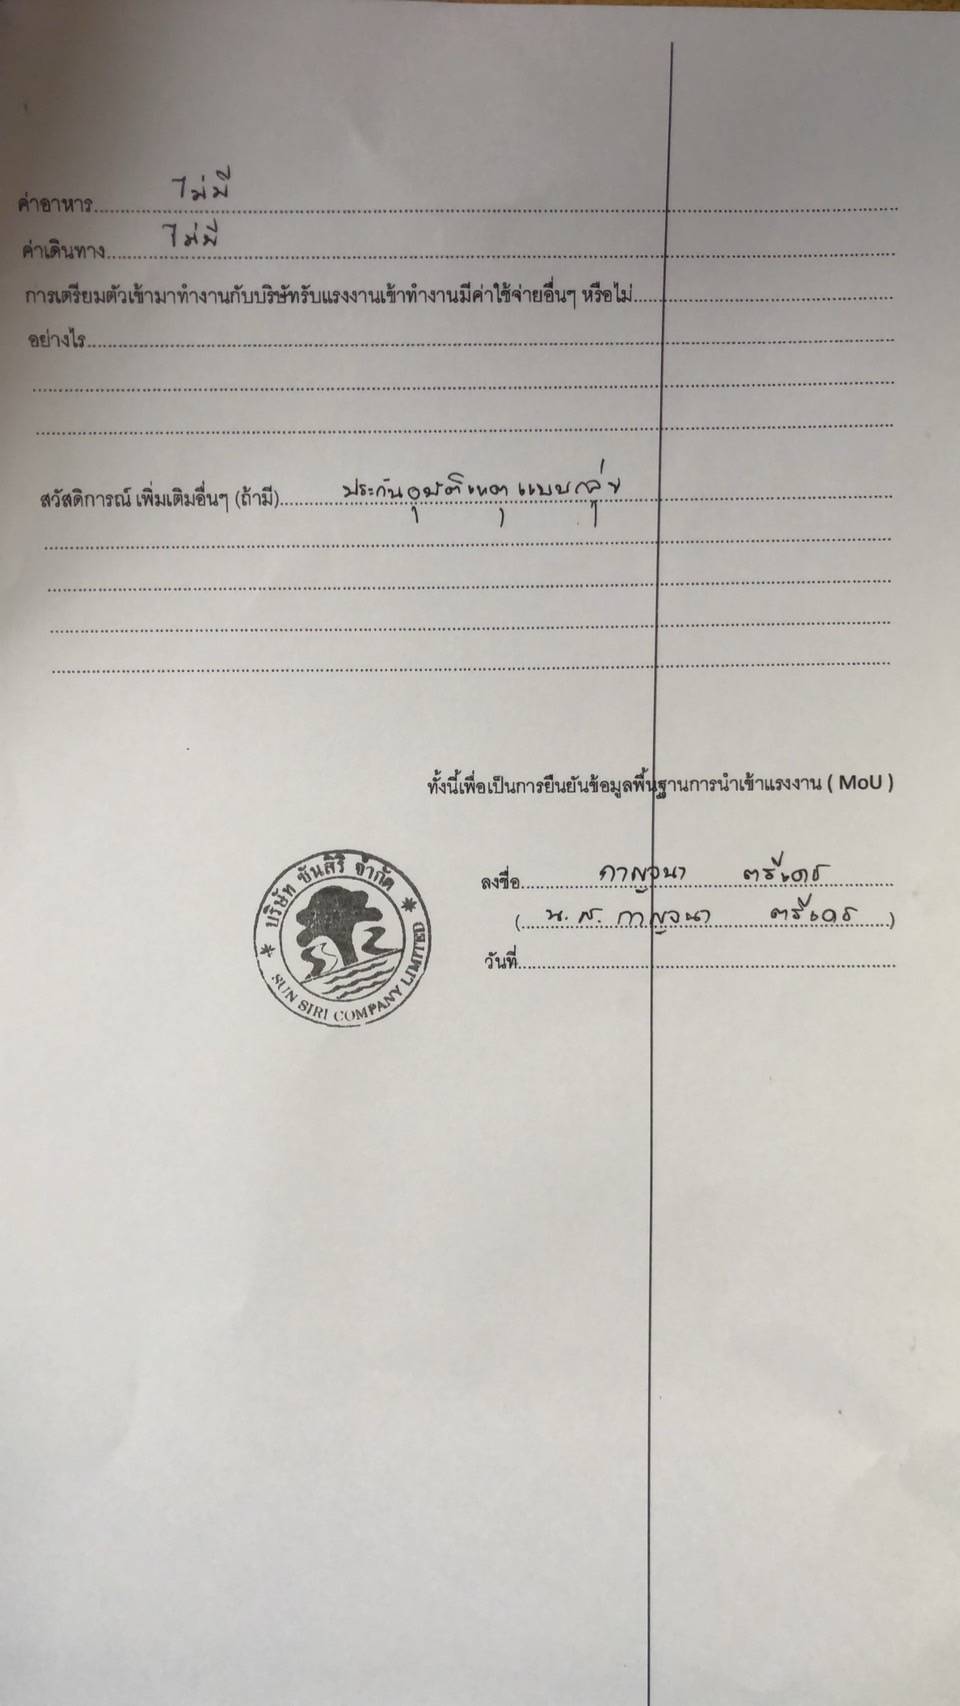 ค่าอาหาร ไม่มี
ค่าเดินทาง ไม่มี
การเตรียมตัวเข้ามาทำงานกับบริษัทรับแรงงานเข้าทำงานมีค่าใช้จ่ายอื่นๆ หรือไม่
อย่างไร
สวัสดิการณ์ เพิ่มเติมอื่นๆ (ถ้ามี) ประกันอุบัติเหตุแบบกลุ่ม
ทั้งนี้เพื่อเป็นการยืนยันข้อมูลพื้นฐานการนำเข้าแรงงาน ( MoU )
บริษัท ซันสิริ จำกัด
SUN SIRI COMPANY LIMITED
ลงชื่อ กาญจนา
( น.ส. กาญจนา )
วันที่